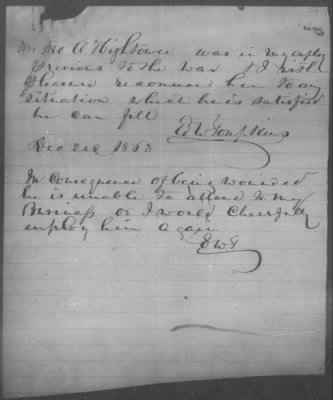 Mr Jno A Hightower was in my
previous to the War & I with
pleasure recommen him to any
situation which he is satisfied
he can fill
Edw
Dec 1863
In consequence of being wounded
he is unable to attend to my
Business or I would cheerfully
employ him again